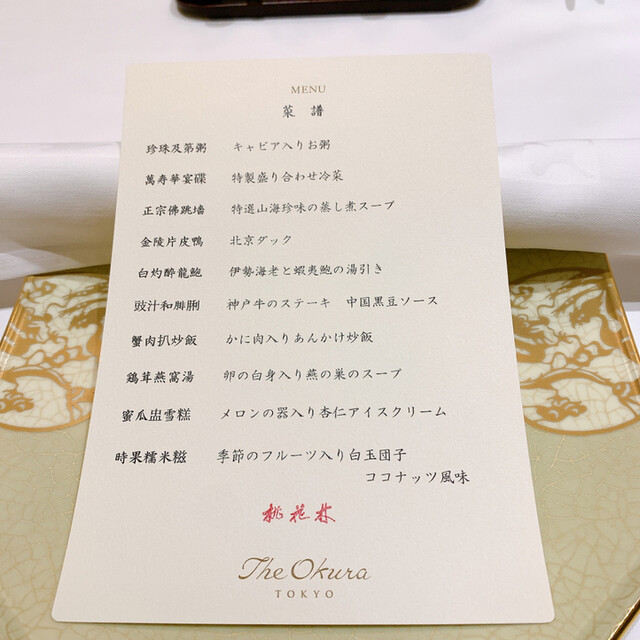 MENU
菜 譜
珍珠及第粥 キャビア入りお粥
萬寿華宴碟 特製盛り合わせ冷菜
正宗佛跳墻 特選山海珍味の蒸し煮スープ
金陵片皮鴨 北京ダック
白灼醉龍鮑 伊勢海老と蝦夷鮑の湯引き
豉汁和腓脷 神戸牛のステーキ 中国黒豆ソース
蟹肉扒炒飯 かに肉入りあんかけ炒飯
鶏茸燕窩湯 卵の白身入り燕の巣のスープ
蜜瓜盅雪糕 メロンの器入り杏仁アイスクリーム
時果糯米糍 季節のフルーツ入り白玉団子
ココナッツ風味
桃花林
The Okura
TOKYO